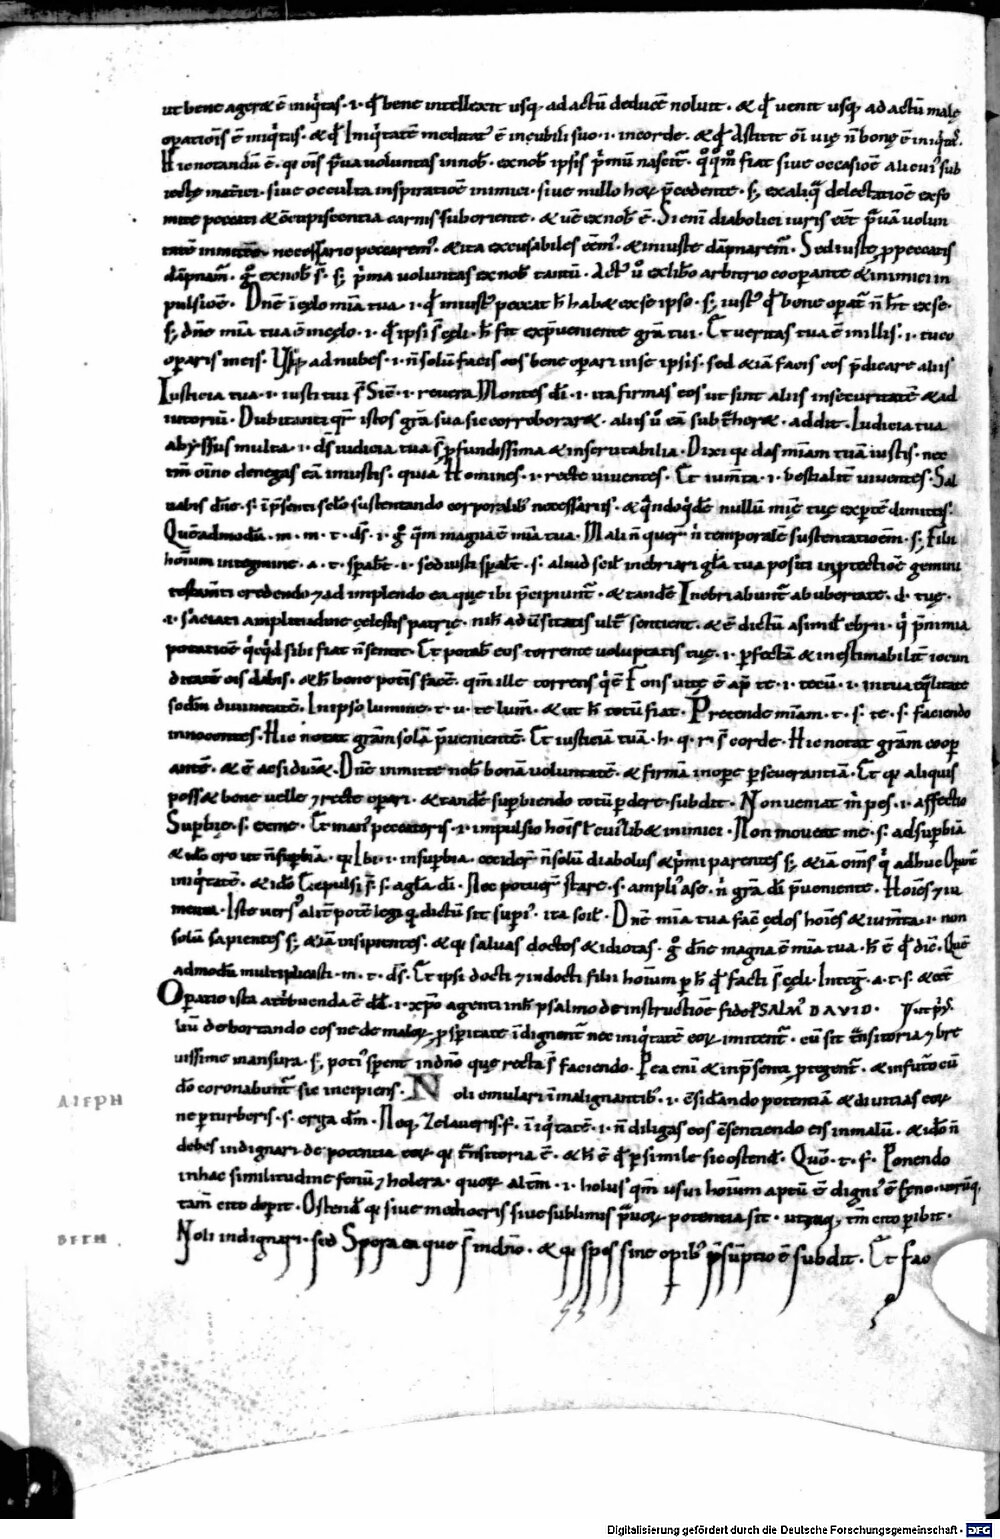 ut bene ageret ē iniq̇tas · i · qđ bene intellexit usq; ad actū deducē noluit · & qđ uenit usq; ad actū male
opationis ē iniq̇tas · & qđ Iniq̇tatē meditatꝰ ē in cubili suo · i · in corde · & qđ Astitit oī uie n̄ bone ē iniq̇tas
Hic notandū ē · qͥ oīs p̄ua uoluntas in nob̄ · ex nob̄ ipsis ṗmū nascit̄ · fiat siue occasiōe alicuiꝰ sub
iecte mat̄iei · siue occulta inspiratiōe inimici · siue nullo hoꝝ p̄cedente · s; ex aliq̄ delectatiōe ex fo
mite peccati & c̄cupiscentia carnis suboriente · & uē ex nob̄ ē · Si enī diabolici iuris eēt p̄uā uolun
tatē inmittere necessario peccaremꝰ · & ita excusabiles eēmꝰ · & iniuste dāpnaremꝰ · Sed iuste p peccatis
dāpnam̄ · ex nob̄ s̄ · s; ṗma uoluntas ex nob̄ tantū · Actꝰ ū ex libo arbitrio cooperante & inimici in
pulsiōe · Dn̄e ī cęlo mīa tua · i · qđ iniustꝰ peccat h̄ habet ex se ipso · s; iustꝰ qđ bene operat̄ n̄ h̄t ex se ·
s; dn̄e mīa tua ē in cęlo · i · qđ ipsi s̄ cęli · h̄ fit ex p̄ueniente gr̄a tui · Et ueritas tua · i · tu co
operaris meis · Usq; ad nubes · i · n̄ solū facis eos bene operari in se ipsis · sed & iā facis eos p̄dicare aliis
Iusticia tua · i · iusti tui s̄ Sic̄ · i · reuera Montes dī · i · ita firmas eos ut sint aliis in securitatē & ad
iutoriū · Dubitanti qr̄ istos gr̄a sua sic corroboraret · aliis ū eā subt̄heret · addit · Iudicia tua
abyssus multa · i · dꝰ iudicia tua s̄ pfundissima & inscrutabilia · Dixi qͥ das mīam tuā iustis · nec
tm̄ oīno denegas eā iniustis · quia Homines · i · recte uiuentes · Et ium̄ta · i · bestialit̄ uiuentes · Sal
uabis dn̄e · s · ī p̄senti sclo sustentando corporalibꝰ necessariis · & nullū mīe tue expertē dimittis ·
Quēadmodū · m · m · t · ds̄ · i · q̄m magna ē mīa tua · Mali n̄ quer̄ n̄ temporalē sustentatiōem · s; Filii
hoīum in tegmine · a · t · spabt̄ · i · sed iusti spabt̄ · s · aliud scil inebriari gl̄a tua positi in ptectiōe gemini
testam̄ti credendo & ad implendo ea que ibi p̄cipiunt̄ · & tandē Inebriabunt̄ ab ubertate · d · tue ·
· i · saciati amplitudine cęlestis patrię · nih̄ aduersitatis ult̄ sentient · & ē dictū a simil ebrii · qͥ p̄ nimia
potatiōe q̇cq̇d sibi fiat n̄ sentit · Et potab̄ eos torrente uoluptatis tue · i · pfectā & inestimabilē iocun
ditatē eis dabis · & h̄ bene potis facē · qm̄ ille torrens q̇ ē Fons uite ē ap̄ te · i · tecū · i · in tua eq̄litate
scđm diuinitatē · In ipso lumine · t · u · te lum̄ · & ut h̄ totū fiat · Pretende mīam · t · s · te · s · faciendo
innocentes · Hic notat grām solā p̄uenientē · Et iusticiā tuā · h · q · r · s̄ corde · Hic notat grām coop
antē · & ē ac si dicat · Dn̄e inmitte nob̄ bonā uoluntatē · & firmā in ope pseuerantiā · Et qͥ aliquis
posset bene uelle & recte operari · & tandē supbiendo totū pdere · subdit · Non ueniat m̄ pes · i · affectio
Supbie · s · ex me · Et manꝰ peccatoris · i · impulsio hoīs l cuilibet inimici · Non moueat me · s · ad supbiā
& iđo oro ut n̄ supbiā · qͥ Ibi · i · in supbia · cecider̄ n̄ solū diabolus & ṗmi parentes s; & iā om̄s qͥ adhuc Opant̄
iniq̇tatē · & iđo Expulsi s̄ · s · a gl̄a dī · Nec potuer̄ stare · s · ampliꝰ a se · n̄ gr̄a dī p̄ueniente · Hoīes & iu
menta · Iste uersꝰ alit̄ potē legi qͥ dictū sit supiꝰ · ita scil · Dn̄e mīa tua facē cęlos hoīes & ium̄ta · i · non
solū sapientes s; & iā insipientes · & qͥ saluas doctos & idiotas · dn̄e magna ē mīa tua · h̄ ē qđ dic̄ · Quē
admodū multiplicasti · m · t · ds̄ · Et ipsi docti & indocti filii hoīum p h̄ qđ facti s̄ cęli · In teḡ · a · t · s · & cēt
Operatio ista att̄buenda ē dd̄ · i · xp̄o agenti in h̄ psalmo de instructiōe fidei PSALMꝰ DAVID ·
uū dehortando eos ne de maloꝝ psperitate īdignent̄ nec iniq̇tatē eoꝝ imitent̄ · cū sit t̄nsitoria & bre
uissime mansura · s; potiꝰ sperent in dn̄o que recta s̄ faciendo · P ea enī & in p̄senti ptegent̄ · & in futuro cū
dō coronabunt̄ sic incipiens · Noli emulari ī malignantibꝰ · i · c̄siđando potentiā & diuitias eoꝝ
ne perturberis · s · erga dm̄ · Neq; Zelaueris · f · ī iq̇tatē · i · n̄ diligas eos c̄sentiendo eis in malū · & iđo n̄
debes indignari de potentia eoꝝ qͥ t̄nsitoria ē · & h̄ ē qđ p simile sic ostendꝰ · Quō · t · f · Ponendo
in hac similitudine fenū & holera · quoꝝ altm̄ · i · holus qm̄ usui hoīum aptū ē digniꝰ ē feno · uerūq;
tam̄ cito deperit · Ostendꝰ qͥ siue mediocris siue sublimis p̄uoꝝ potentia sit · utraq; tm̄ cito peribit ·
Noli indignari · sed Spera ea que s̄ in dn̄o · & qͥ spes sine operibꝰ p̄sūptio ē subdit · Et fac
ALEPH
BETH ·
Digitalisierung gefördert durch die Deutsche Forschungsgemeinschaft - DFG